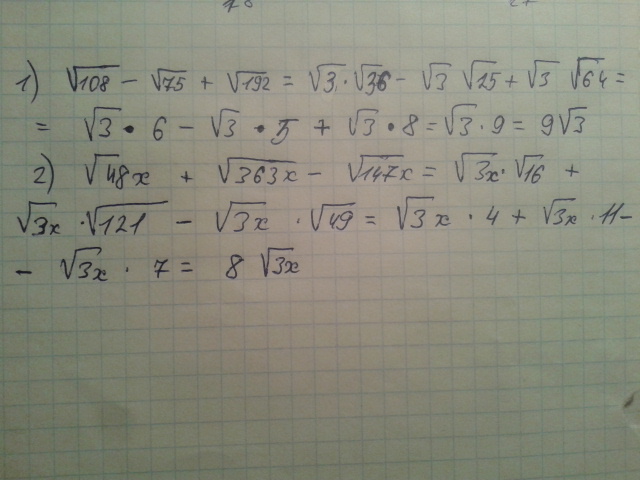 1) √108 − √75 + √192 = √3 · √36 − √3 √25 + √3 √64 =
= √3 · 6 − √3 · 5 + √3 · 8 = √3 · 9 = 9√3
2) √48x + √363x − √147x = √3x · √16 +
√3x · √121 − √3x · √49 = √3x · 4 + √3x · 11 −
− √3x · 7 = 8 √3x